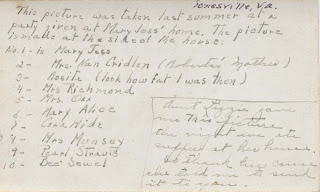 Jonesville, Va.
This picture was taken last summer at a
party given at Mary Joss' home. The picture
is made at the side of the house.
No. 1 - is Mary Joss
2 - Mrs. Nan Cridlin (Roberta's Mother)
3 - Rosita (look how fat I was then)
4 - Mrs Richmond
5 - Mrs.
6 - Mary Alice
7 - Cora Hide
8 - Mrs Munsey
9 - Pearl
10 - Dee Sewel
Aunt Lizzie gave
me this picture
the night we ate
supper at her house.
So thank her cause
she told me to send
it to you.